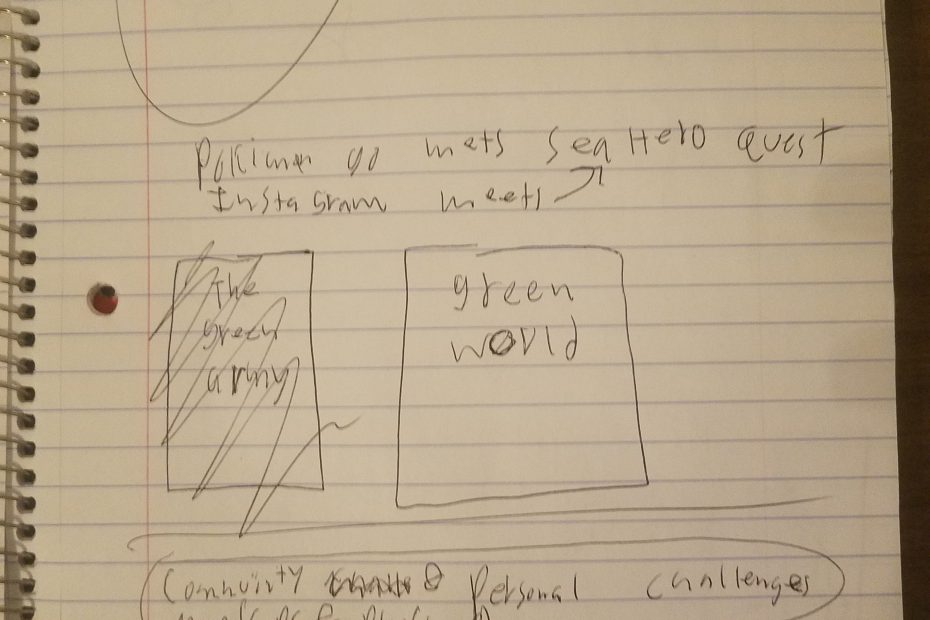 Pokiman go mets Sea Hero Quest
Instagram meets
the
green
army
green
world
Community & Personal challenges